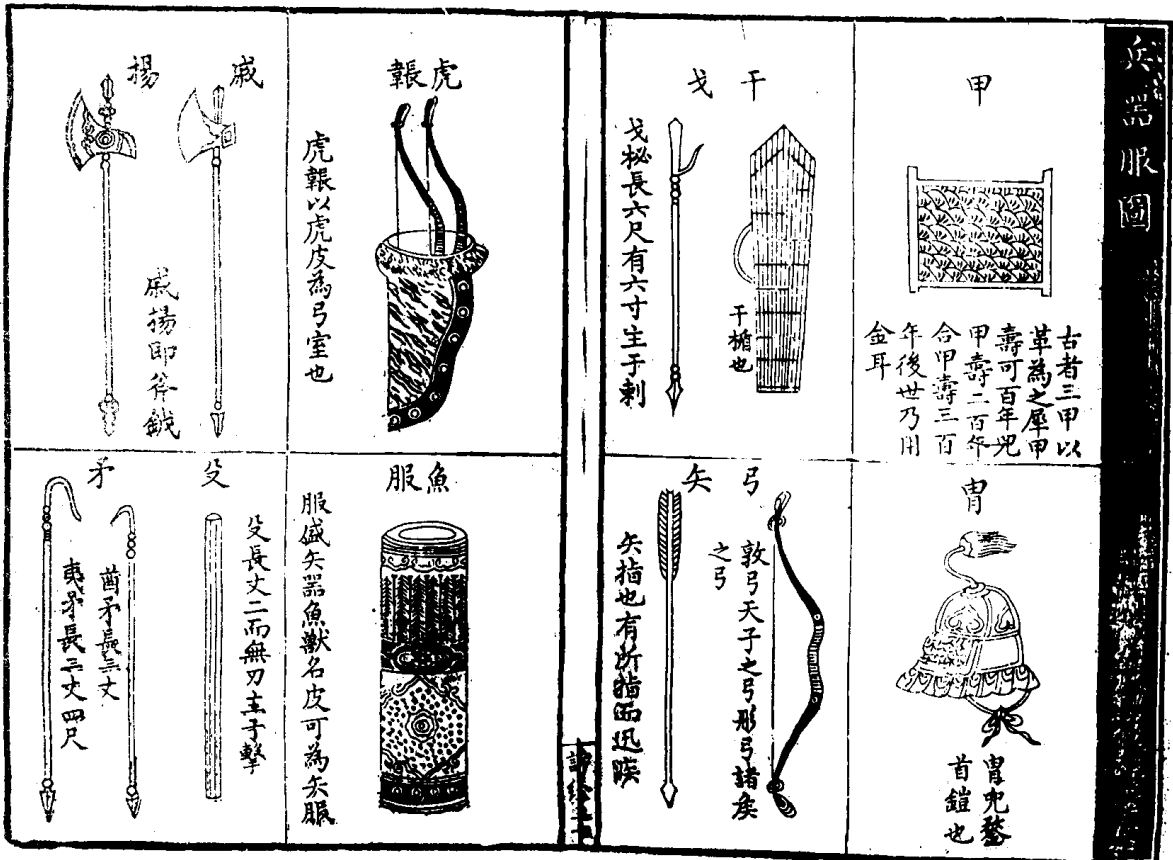 兵器服圖
甲
古者三甲以
革為之犀甲
壽可百年兕
甲壽二百年
合甲壽三百
年後世乃用
金耳
胄
胄兜鍪
首鎧也
干
干楯也
戈
戈柲長六尺有六寸主于刺
弓
敦弓天子之弓彤弓諸矦
之弓
矢
矢指也有所指而迅疾
虎韔
虎韔以虎皮為弓室也
魚服
服盛矢器魚獸名皮可為矢服
戚
揚
戚揚即斧鉞
殳
殳長丈二而無刃主于擊
矛
酋矛長二丈
夷矛長二丈四尺